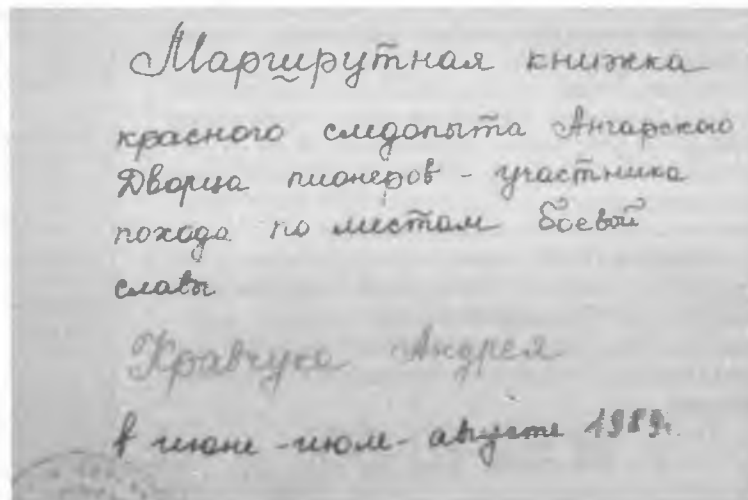 Маршрутная книжка
красного следопыта Ангарского
Дворца пионеров - участника
похода по местам боевой
славы
Кравчука Андрея
в июне - июле - августе 1989г.